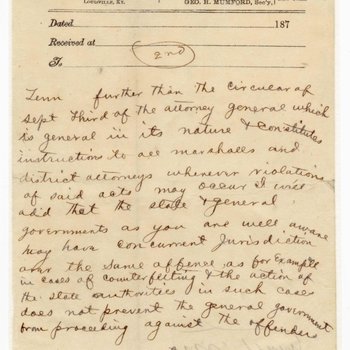 Louisville, Ky.
Geo. H. Mumford, Sec'y,
Dated 187
Received at
To
2nd
Tenn further than the circular of
Sept third of the attorney general which
is general in its nature & constitutes
instructions to all marshalls and
district attorneys whenever violations
of said acts may occur I will
add that the state & general
governments as you are well aware
may have concurrent Jurisdiction
over the same offence as for Example
in cases of counterfeiting & the action of
the state authorities in such cases
does not prevent the general government
from proceeding against the offenders